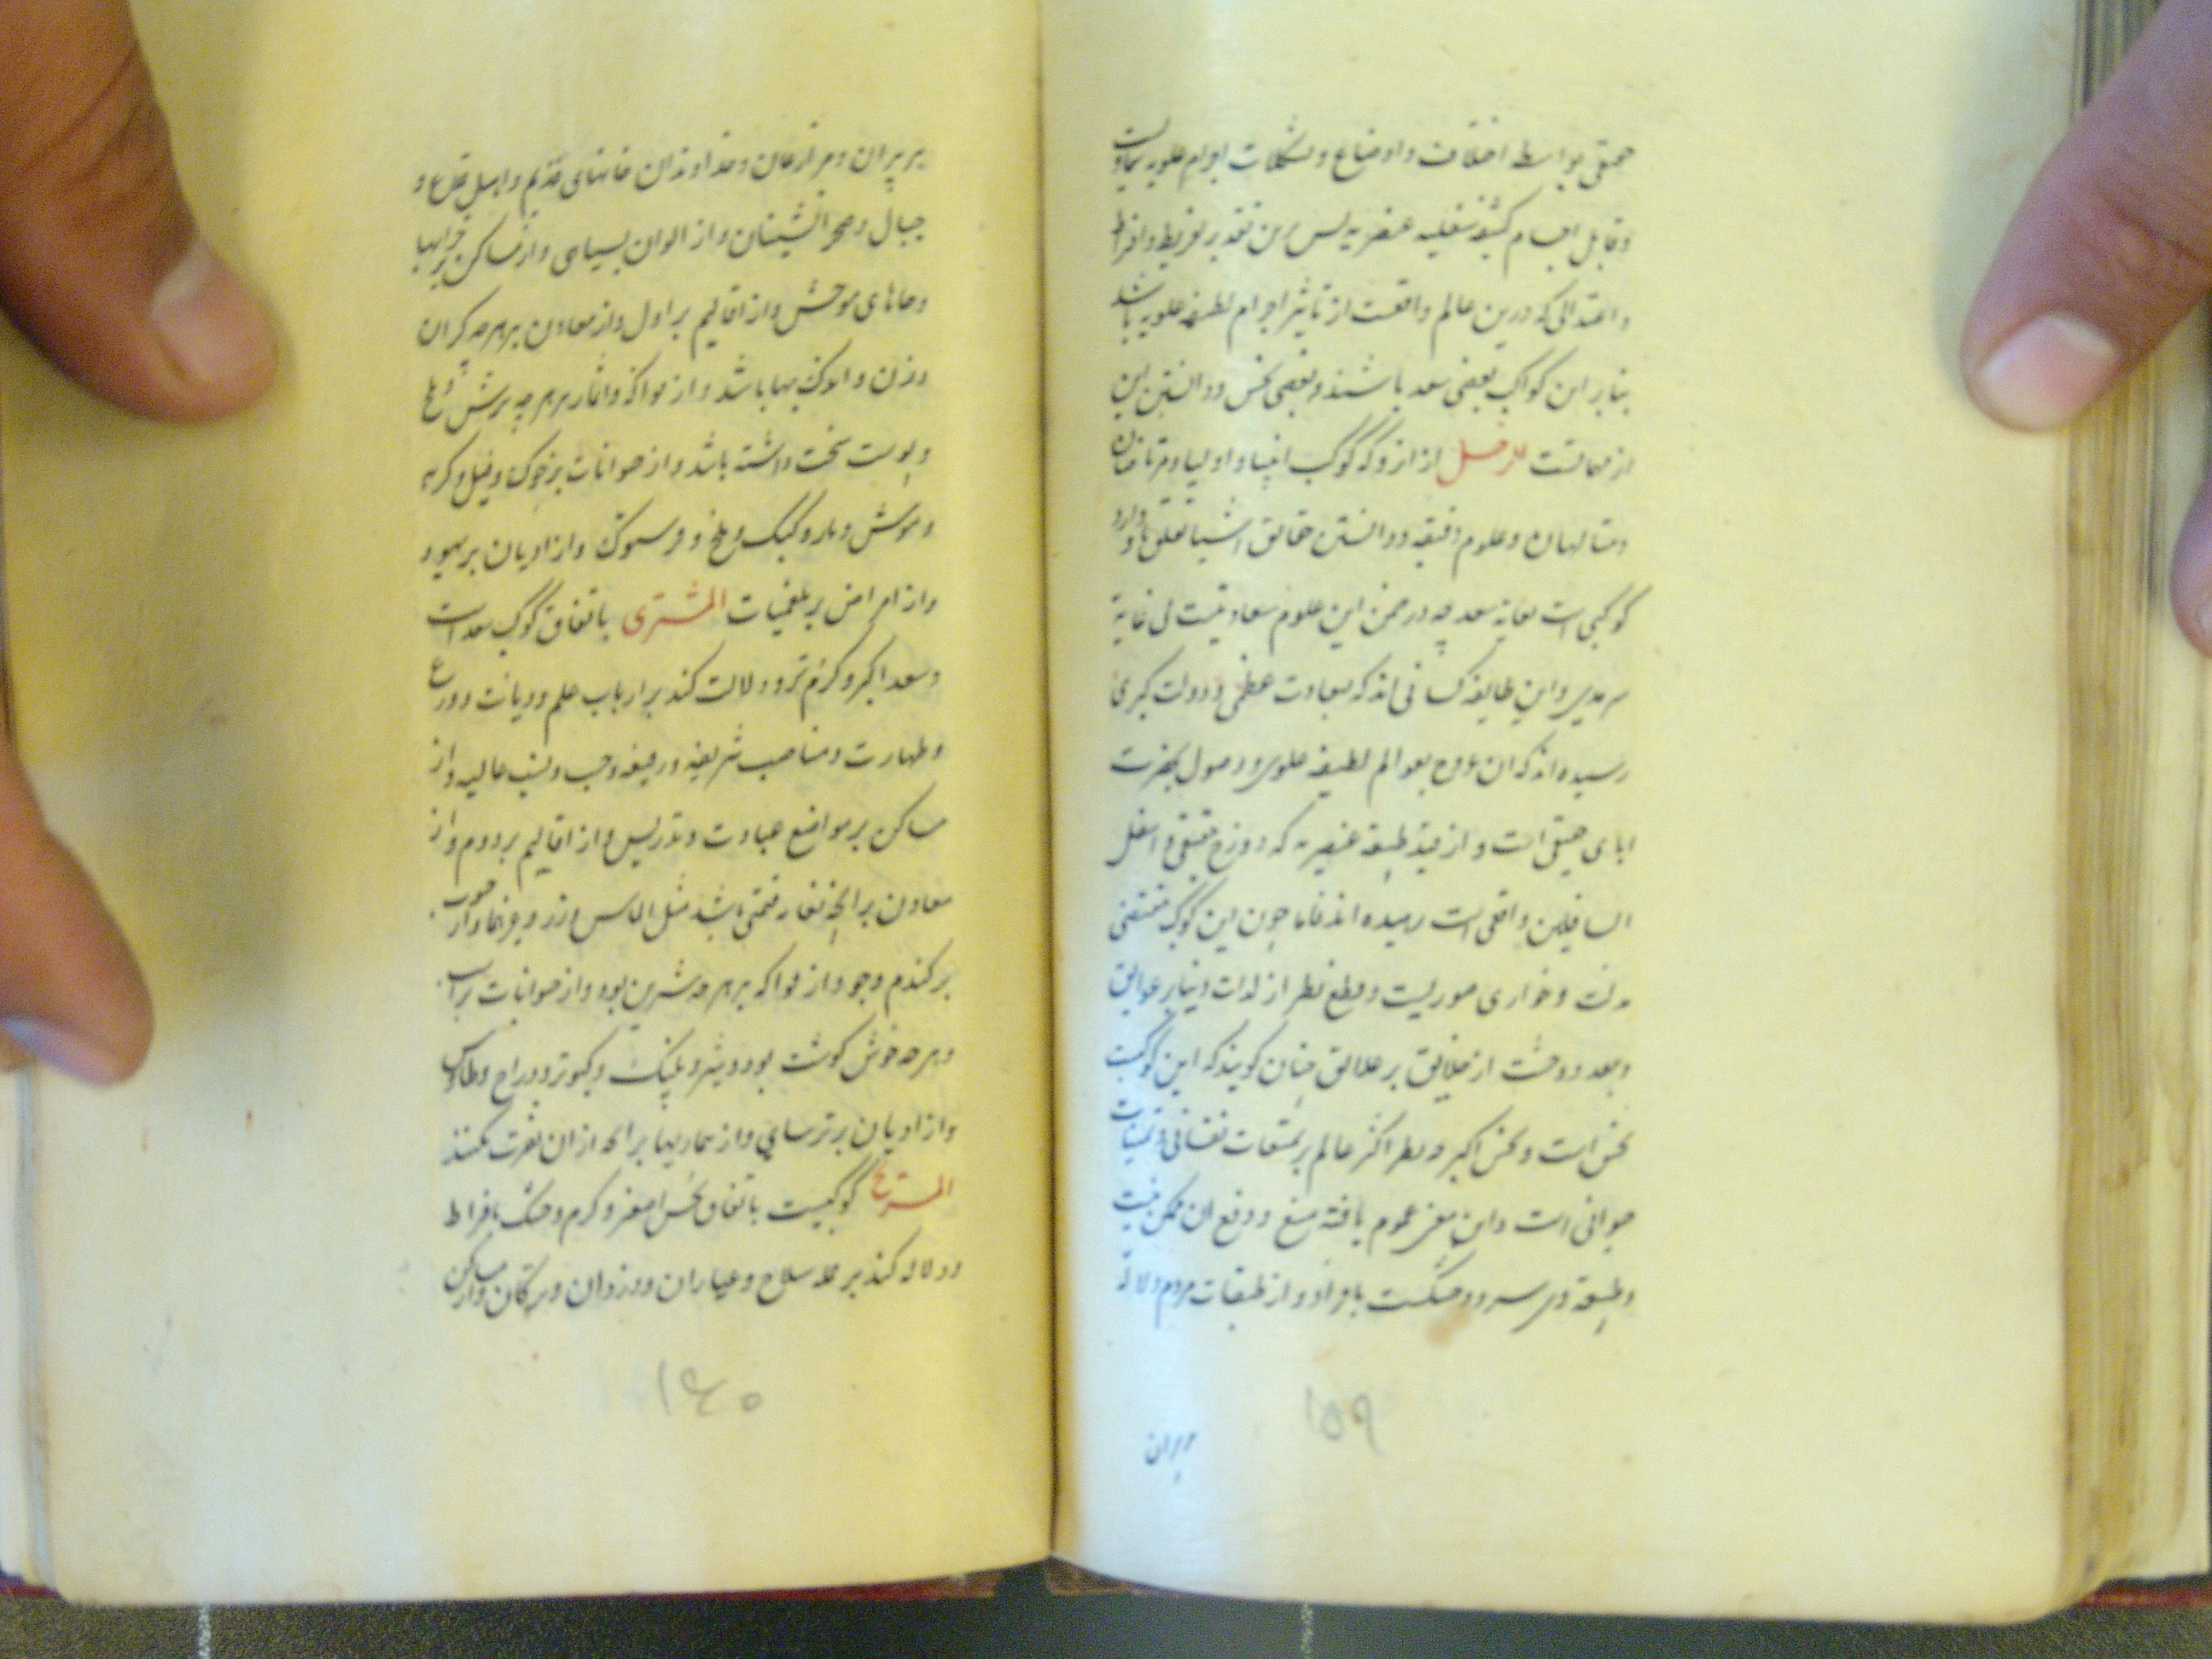 حقیقی بواسط اختلاف و اوضاع و تشکلات اجرام علویه سماویست
و قابل اجسام کثیفه سفلیه عنصریه پس برین تقدیر تفریط و افراط
و اعتدالی که درین عالم واقعست از تاثیر اجرام لطیفه علویه باشد
بنابر این کواکب بعضی سعد باشند و بعضی نحس و دانستن این
از مهمات است زحل از انرو که کوکب انبیا و اولیا و مرتاضان
و متالهان و علوم دقیقه و دانستن حقایق اشیا تعلق باو دارد
کوکبی است بغایة سعد چه در ضمن این علوم سعادتیست لی غایة
سرمدی و این طایفه کسانی اند که بسعادت عظمی و دولت کبری
رسیده اند که ان عروج بعوالم لطیفه علوی و وصول بحضرت
ابای حقیقی است و از قید طبیعة عنصریه که دوزخ حقیقی و اسفل
السافلین واقعی است رهیده اند فاما چون این کوکب مقتضی
مذلت و خواری صوریست و قطع نظر از لذات دنیا بر عوایق
و بعد و وحشت از خلایق بر علایق چنان کویند که این کوکب
نحس است و نحس اکبر و نظر اکثر عالم بر تمتعات نفسانی و تمنیات
حیوانی است و این معنی عموم یافته منع و دفع ان ممکن نیست
و طبیعة وی سرد و خشکست بافراد و از طبقات مردم دلالة
بر پیران
۱۵۹
بر پیران و مزارعان و خداوندان خانهای قدیم و اهل قلاع و
جبال و صحرانشینان و از الوان بسیاهی و از مساکن بر خرابها
و جاهای موحش و از اقالیم بر اول و از معادن بر هرچه کران
وزن و اندک بها باشد و از فواکه و اثمار بر هرچه ترش و تلخ
و پوست سخت داشته باشد و از حیوانات بر خوک و فیل و کربه
و موش و مار و کیک و ملخ و و از ادیان بر یهود
و از امراض بر بلغمیات المشتری باتفاق کوکب سعد است
و سعد اکبر و کرم تر و دلالت کند بر ارباب علم و دیانت و ورع
و طهارت و مناصب شریفه و رفیعه و حسب و نسب عالیه و از
مساکن بر مواضع عبادت و تدریس و از اقالیم بر دوم و از
معادن بر انچه قیمتی باشد مثل الماس و زر و و از حبوب
بر کندم و جو و از فواکه بر هرچه شیرین بود و از حیوانات بر اسب
و هرچه خوش کوشت بود و شیر و پلنک و کبوتر و دراج و طاوس
و از ادیان بر ترسایی و از بیماریها بر انچه از ان نفرت نکنند
المریخ کوکبیست باتفاق نحس اصغر و کرم و خشک بافراط
و دلالة کند بر اهل سلاح و عیاران و دزدان و ترکان و از مساکن
۱۶۰